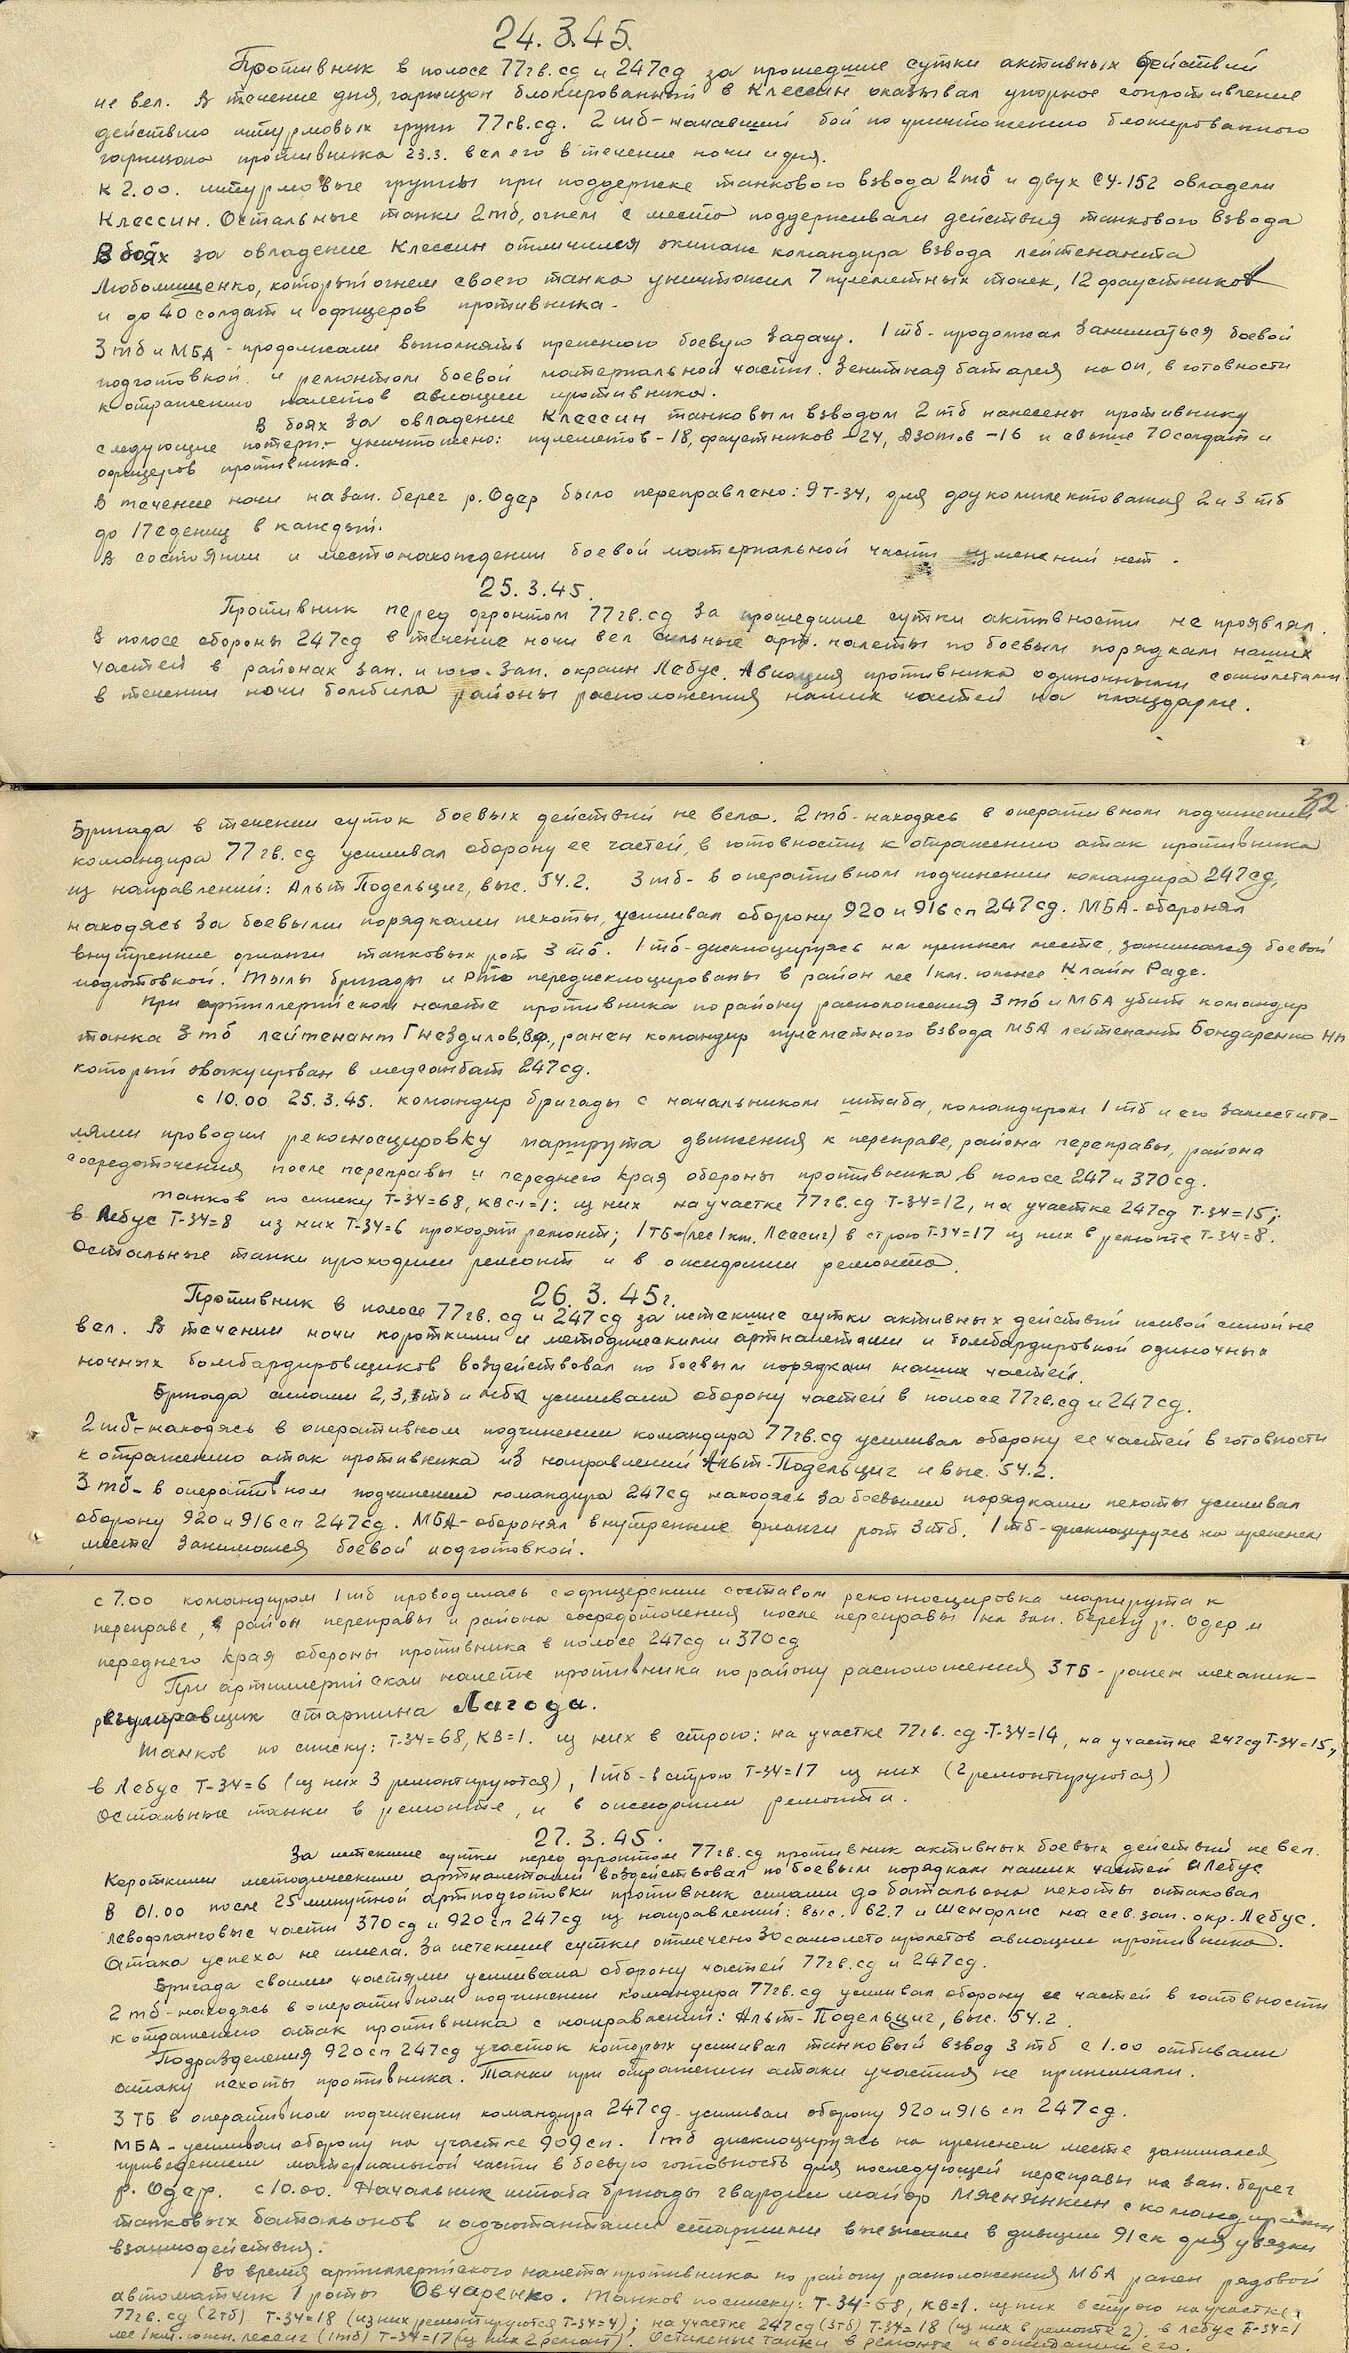 24.3.45.
Противник в полосе 77гв.сд и 247сд за прошедшие сутки активных действий
не вел. В течение дня, гарнизон блокированный в Клессин оказывал упорное сопротивление
действию штурмовых групп 77гв.сд. 2тб-начавший бой по уничтожению блокированного
гарнизона противника 23.3. вел его в течение ночи и дня.
К 2.00. штурмовые группы при поддержке танкового взвода 2тб и двух СУ-152 овладели
Клессин. Остальные танки 2тб, огнем с места поддерживали действия танкового взвода
В боях за овладение Клессин отличился экипаж командира взвода лейтенанта
Любомищенко, который огнем своего танка уничтожил 7 пулеметных точек, 12 фаустников
и до 40 солдат и офицеров противника.
3тб и МБА - продолжали выполнять прежнюю боевую задачу. 1тб - продолжал заниматься боевой
подготовкой и ремонтом боевой материальной части. Зенитная батарея на ОП, в готовности
к отражению налетов авиации противника.
В боях за овладение Клессин танковым взводом 2тб нанесены противнику
следующие потери:- уничтожено: пулеметов-18, фаустников-24, Дзотов-16 и свыше 70 солдат и
офицеров противника.
В течение ночи на зап. берег р. Одер было переправлено: 9 Т-34, для доукомплектования 2 и 3 тб
до 17 едениц в каждый.
В состоянии и местонахождении боевой материальной части изменений нет.
25.3.45.
Противник перед фронтом 77гв.сд за прошедшие сутки активности не проявлял.
В полосе обороны 247сд в течение ночи вел сильные арт. налеты по боевым порядкам наших
частей в районах зап. и юго-зап. окраин Лебус. Авиация противника одиночными самолетами
в течении ночи бомбила районы расположения наших частей на плацдарме.
32
Бригада в течении суток боевых действий не вела. 2тб-находясь в оперативном подчинении
командира 77гв.сд усиливал оборону ее частей, в готовности к отражению атак противника
из направлений: Альт Подельциг, выс. 54.2. 3тб- в оперативном подчинении командира 247сд,
находясь за боевыми порядками пехоты, усиливал оборону 920 и 916 сп 247сд. МБА-оборонял
внутренние фланги танковых рот 3тб. 1тб-дислоцируясь на прежнем месте, занимался боевой
подготовкой. Тылы бригады и РТО передислоцированы в район лес 1км. южнее Клайн Раде.
При артиллерийском налете противника по району расположения 3тб и МБА убит командир
танка 3тб лейтенант Гнездилов, В.Ф., ранен командир пулеметного взвода МБА лейтенант Бондаренко НН
который эвакуирован в медсанбат 247сд.
с 10.00 25.3.45. командир бригады с начальником штаба, командиром 1тб и его заместите-
лями проводил рекогносцировку маршрута движения к переправе, района переправы, района
сосредоточения после переправы и переднего края обороны противника в полосе 247 и 370сд.
Танков по списку Т-34=68, КВс-1=1: из них на участке 77гв.сд Т-34=12, на участке 247сд Т-34=15;
в Лебус Т-34=8 из них Т-34=6 проходят ремонт; 1ТБ-(лес 1км. Лессиг) в строю Т-34=17 из них в ремонте Т-34=8.
Остальные танки проходили ремонт и в ожидании ремонта.
26.3.45г.
Противник в полосе 77гв.сд и 247сд за истекшие сутки активных действий живой силой не
вел. В течении ночи короткими и методическими артналетами и бомбардировкой одиночных
ночных бомбардировщиков воздействовал по боевым порядкам наших частей.
Бригада силами 2,3, тб и МБА усиливала оборону частей в полосе 77гв.сд и 247сд.
2тб-находясь в оперативном подчинении командира 77гв.сд усиливал оборону ее частей в готовности
к отражению атак противника из направлений Альт-Подельциг и выс. 54.2.
3тб- в оперативном подчинении командира 247сд находясь за боевыми порядками пехоты усиливал
оборону 920 и 916 сп 247сд. МБА-оборонял внутренние фланги рот 3тб. 1тб-дислоцируясь на прежнем
месте занимался боевой подготовкой.
с 7.00 командиром 1тб проводилась с офицерским составом рекогносцировка маршрута к
переправе, район переправы и района сосредоточения после переправы на зап. берегу р. Одер и
переднего края обороны противника в полосе 247сд и 370сд
При артиллерийском налете противника по району расположения 3ТБ - ранен механик-
регулировщик старшина Лагода.
Танков по списку: Т-34=68, КВ=1. из них в строю: на участке 77гв. сд Т-34=14, на участке 247сд Т-34=15,
в Лебус Т-34=6 (из них 3 ремонтируются), 1тб-в строю Т-34=17 из них (2 ремонтируются)
Остальные танки в ремонте, и в ожидании ремонта.
27.3.45.
За истекшие сутки перед фронтом 77гв.сд противник активных боевых действий не вел.
Короткими методическими артналетами воздействовал по боевым порядкам наших частей и Лебус
В 01.00 после 25 минутной артподготовки противник силами до батальона пехоты атаковал
левофланговые части 370сд и 920 сп 247сд из направлений: выс. 62.7 и Шенфлис на сев.зап. окр. Лебус.
Атака успеха не имела. За истекшие сутки отмечено 30 самолето пролетов авиации противника.
Бригада своими частями усиливала оборону частей 77гв.сд и 247сд.
2тб-находясь в оперативном подчинении командира 77гв.сд усиливал оборону ее частей в готовности
к отражению атак противника с направлений: Альт-Подельциг, выс. 54.2.
Подразделения 920сп 247сд участок которых усиливал танковый взвод 3тб с 1.00 отбивали
атаку пехоты противника. Танки при отражении атаки участия не принимали.
3ТБ в оперативном подчинении командира 247сд-усиливал оборону 920 и 916 сп 247сд.
МБА-усиливал оборону на участке 909сп. 1тб дислоцируясь на прежнем месте занимался
приведением материальной части в боевую готовность для последующей переправы на зап. берег
р. Одер. с 10.00. Начальник штаба бригады гвардии майор Мяснянкин с командирами
танковых батальонов и адъютантами старшими выезжали в дивизии 91ск для увязки
взаимодействия.
Во время артиллерийского налета противника по району расположения МБА ранен рядовой
автоматчик 1 роты Овчаренко. Танков по списку: Т-34=68, КВ=1. из них в строю на участке
77гв.сд (2тб) Т-34=18 (из них ремонтируются Т-34=4); на участке 247сд (3тб) Т-34=18 (из них в ремонте 2). в Лебус Т-34=1
лес 1км. южн. Лессиг (1тб) Т-34=17 (из них 2 ремонт). Остальные танки в ремонте и в ожидании его.